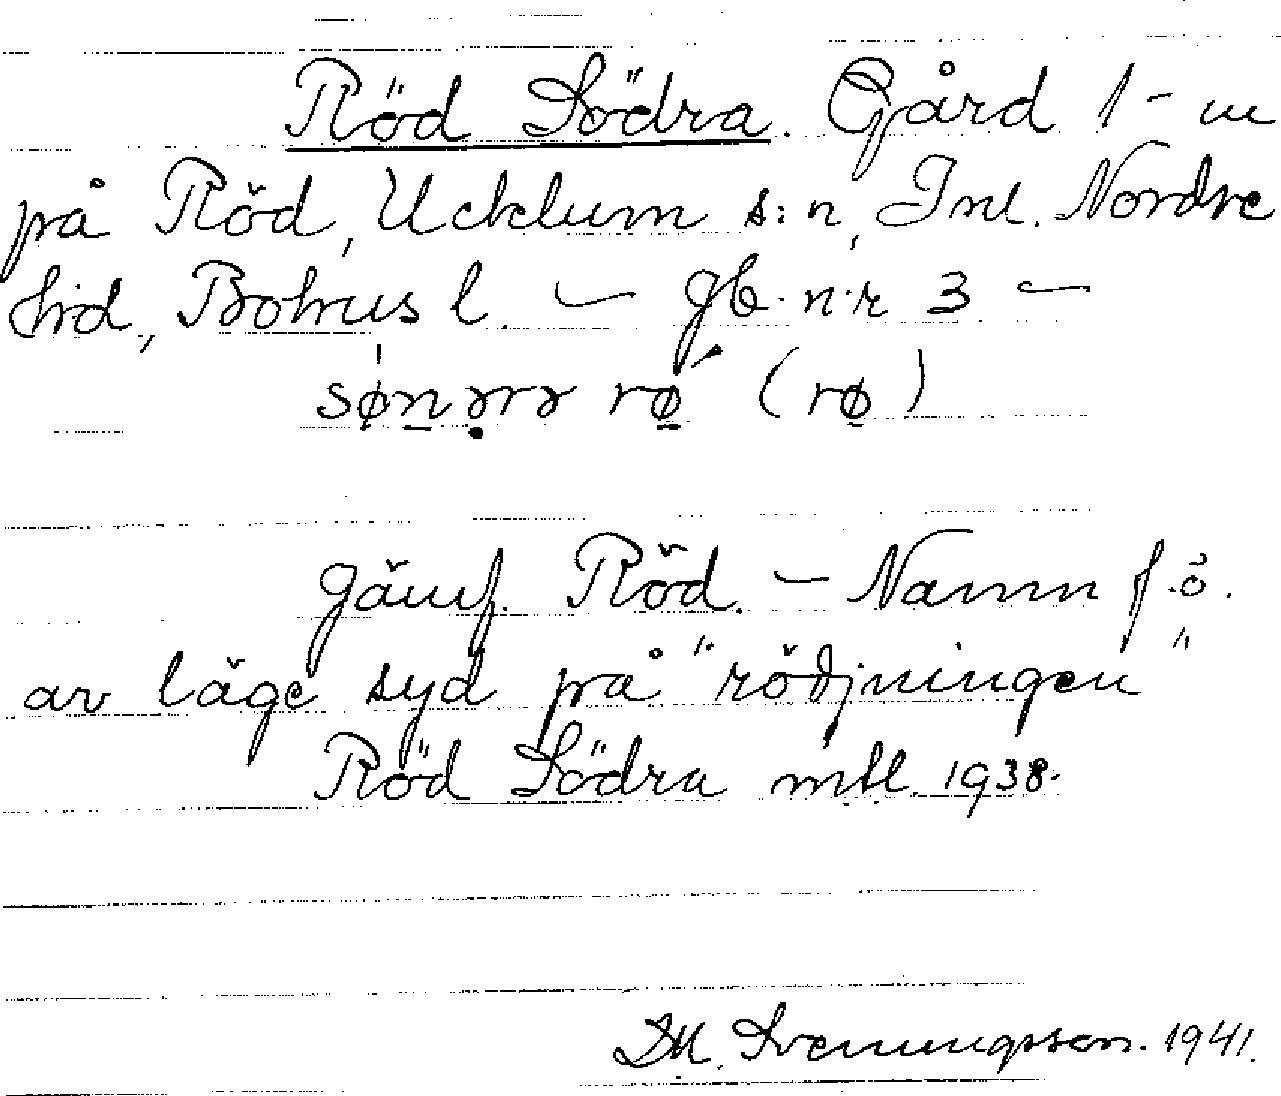 Röd Södra. Gård 1-m
på Röd, Ucklum s:n, Inl. Nordre
hrd, Bohusl. — gb. n:r 3 —
Jämf. Röd. — Namn f.ö.
av läge syd på "rödjningen"
Röd Södra mtl. 1938.
D.H. Svenungsson. 1941.